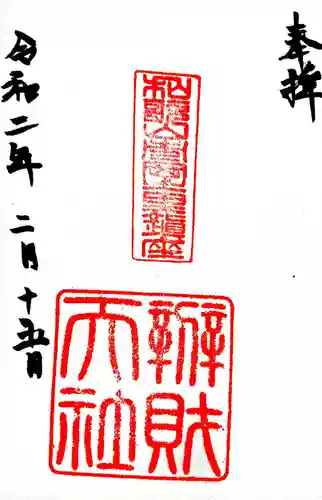 奉拝
辨財
天社
令和二年 二月 十五日